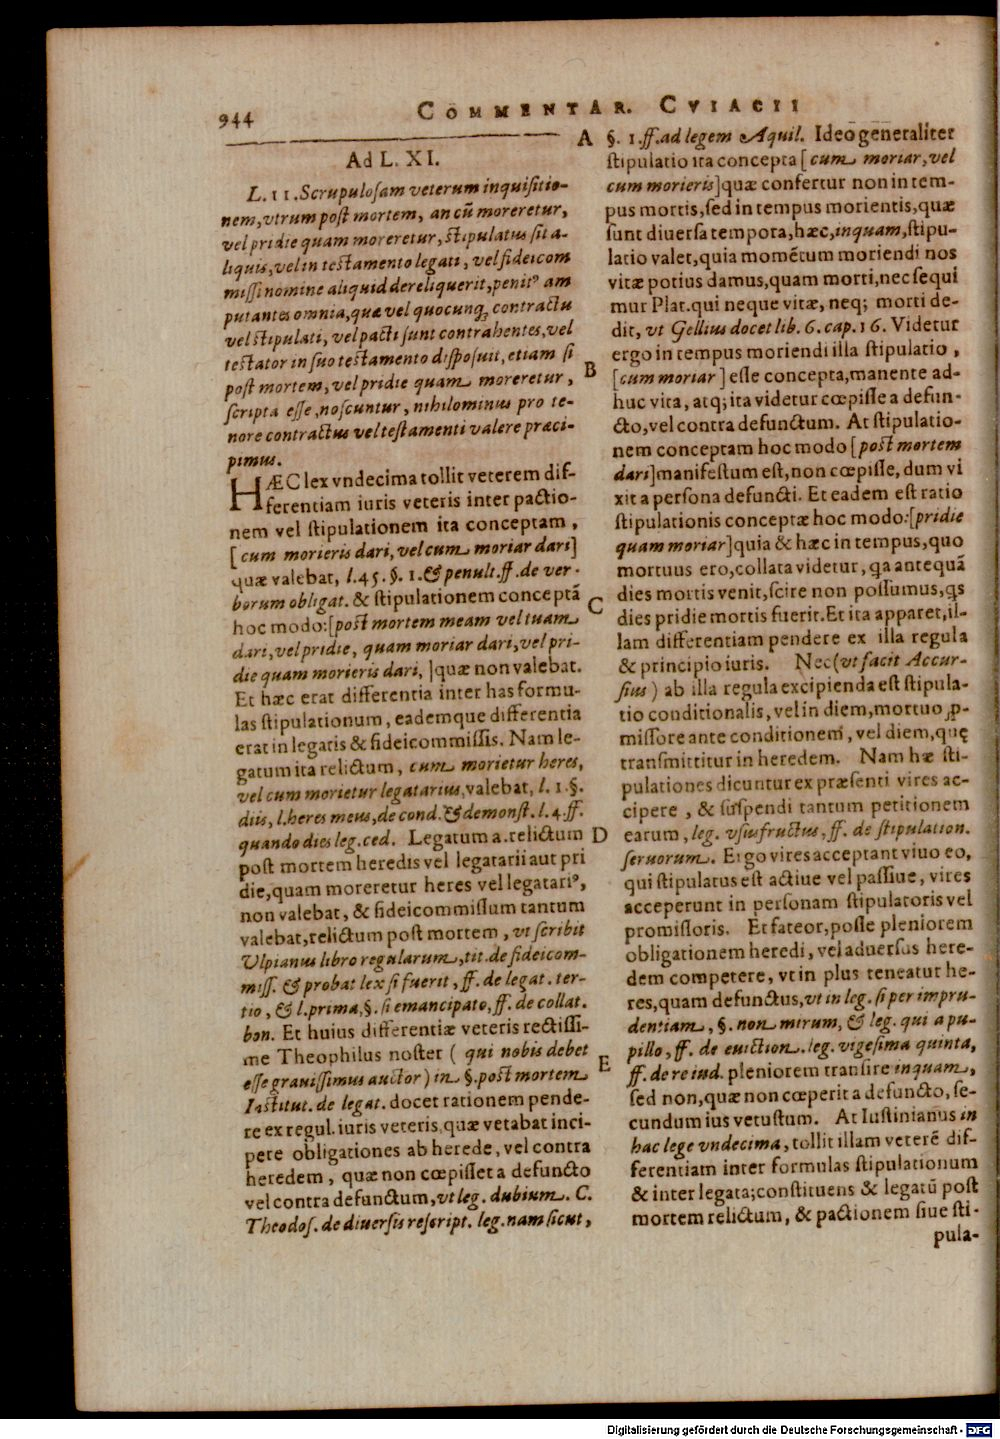 944
COMMENTAR. CVIACII
Ad L. XI.
L. 11. Scrupulosam veterum inquisitio-
nem, vtrum post mortem, an cũ moreretur,
vel pridie quam moreretur, stipulatus sit a-
liquis, vel in testamento legati, vel fideicom
missi nomine aliquid dereliquerit, penitꝰ am
putantes omnia, quæ vel quocunq; contractu
vel stipulati, vel pacti sunt contrahentes, vel
testator in suo testamento disposuit, etiam si
post mortem, vel pridie quam moreretur,
scripta esse, noscuntur, nihilominus pro te-
nore contractus vel testamenti valere præci-
pimus.
HÆC lex vndecima tollit veterem dif-
ferentiam iuris veteris inter pactio-
nem vel stipulationem ita conceptam,
[cum morieris dari, vel cum moriar dari]
quæ valebat, l. 45. §. 1. & penult. ff. de ver-
borum obligat. & stipulationem conceptã
hoc modo: [post mortem meam vel tuam
dari, vel pridie, quam moriar dari, vel pri-
die quam morieris dari,] quæ non valebat.
Et hæc erat differentia inter has formu-
las stipulationum, eademque differentia
erat in legatis & fideicommissis. Nam le-
gatum ita relictum, cum morietur heres,
vel cum morietur legatarius, valebat, l. 1. §.
diis, l. heres meus, de cond. & demonst. l. 4. ff.
quando dies leg. ced. Legatum a. relictum
post mortem heredis vel legatarii aut pri
die, quam moreretur heres vel legatariꝰ,
non valebat, & fideicommissum tantum
valebat, relictum post mortem, vt scribit
Ulpianus libro regularum, tit. de fideicom-
miss. & probat lex si fuerit, ff. de legat. ter-
tio, & l. prima, §. si emancipato, ff. de collat.
bon. Et huius differentiæ veteris rectissi-
me Theophilus noster (qui nobis debet
esse grauissimus auctor) in §. post mortem
Institut. de legat. docet rationem pende-
re ex regul. iuris veteris, quæ vetabat inci-
pere obligationes ab herede, vel contra
heredem, quæ non cœpisset a defuncto
vel contra defunctum, vt leg. dubium. C.
Theodos. de diuersis rescript. leg. nam sicut,
A
B
C
D
E
§. 1. ff. ad legem Aquil. Ideo generaliter
stipulatio ita concepta [cum moriar, vel
cum morieris] quæ confertur non in tem-
pus mortis, sed in tempus morientis, quæ
sunt diuersa tempora, hæc, inquam, stipu-
latio valet, quia momẽtum moriendi nos
vitæ potius damus, quam morti, nec sequi
mur Plat. qui neque vitæ, neq; morti de-
dit, vt Gellius docet lib. 6. cap. 16. Videtur
ergo in tempus moriendi illa stipulatio,
[cum moriar] esse concepta, manente ad-
huc vita, atq; ita videtur cœpisse a defun-
cto, vel contra defunctum. At stipulatio-
nem conceptam hoc modo [post mortem
dari] manifestum est, non cœpisse, dum vi
xit a persona defuncti. Et eadem est ratio
stipulationis conceptæ hoc modo: [pridie
quam moriar] quia & hæc in tempus, quo
mortuus ero, collata videtur, qa antequã
dies mortis venit, scire non possumus, qs
dies pridie mortis fuerit. Et ita apparet, il-
lam differentiam pendere ex illa regula
& principio iuris. Nec (vt facit Accur-
sius) ab illa regula excipienda est stipula-
tio conditionalis, vel in diem, mortuo ꝓ-
missore ante conditionem, vel diem, quę
transmittitur in heredem. Nam hæ sti-
pulationes dicuntur ex præsenti vires ac-
cipere, & suspendi tantum petitionem
earum, leg. vsusfructus, ff. de stipulation.
seruorum. Ergo vires acceptant viuo eo,
qui stipulatus est actiue vel passiue, vires
acceperunt in personam stipulatoris vel
promissoris. Et fateor, posse pleniorem
obligationem heredi, vel aduersus here-
dem competere, vt in plus teneatur he-
res, quam defunctus, vt in leg. si per impru-
dentiam, §. non mirum, & leg. qui a pu-
pillo, ff. de euiction. leg. vigesima quinta,
ff. de re iud. pleniorem transire inquam,
sed non, quæ non cœperit a defuncto, se-
cundum ius vetustum. At Iustinianus in
hac lege vndecima, tollit illam veterẽ dif-
ferentiam inter formulas stipulationum
& inter legata; constituens & legatũ post
mortem relictum, & pactionem siue sti-
pula-
Digitalisierung gefördert durch die Deutsche Forschungsgemeinschaft - DFG